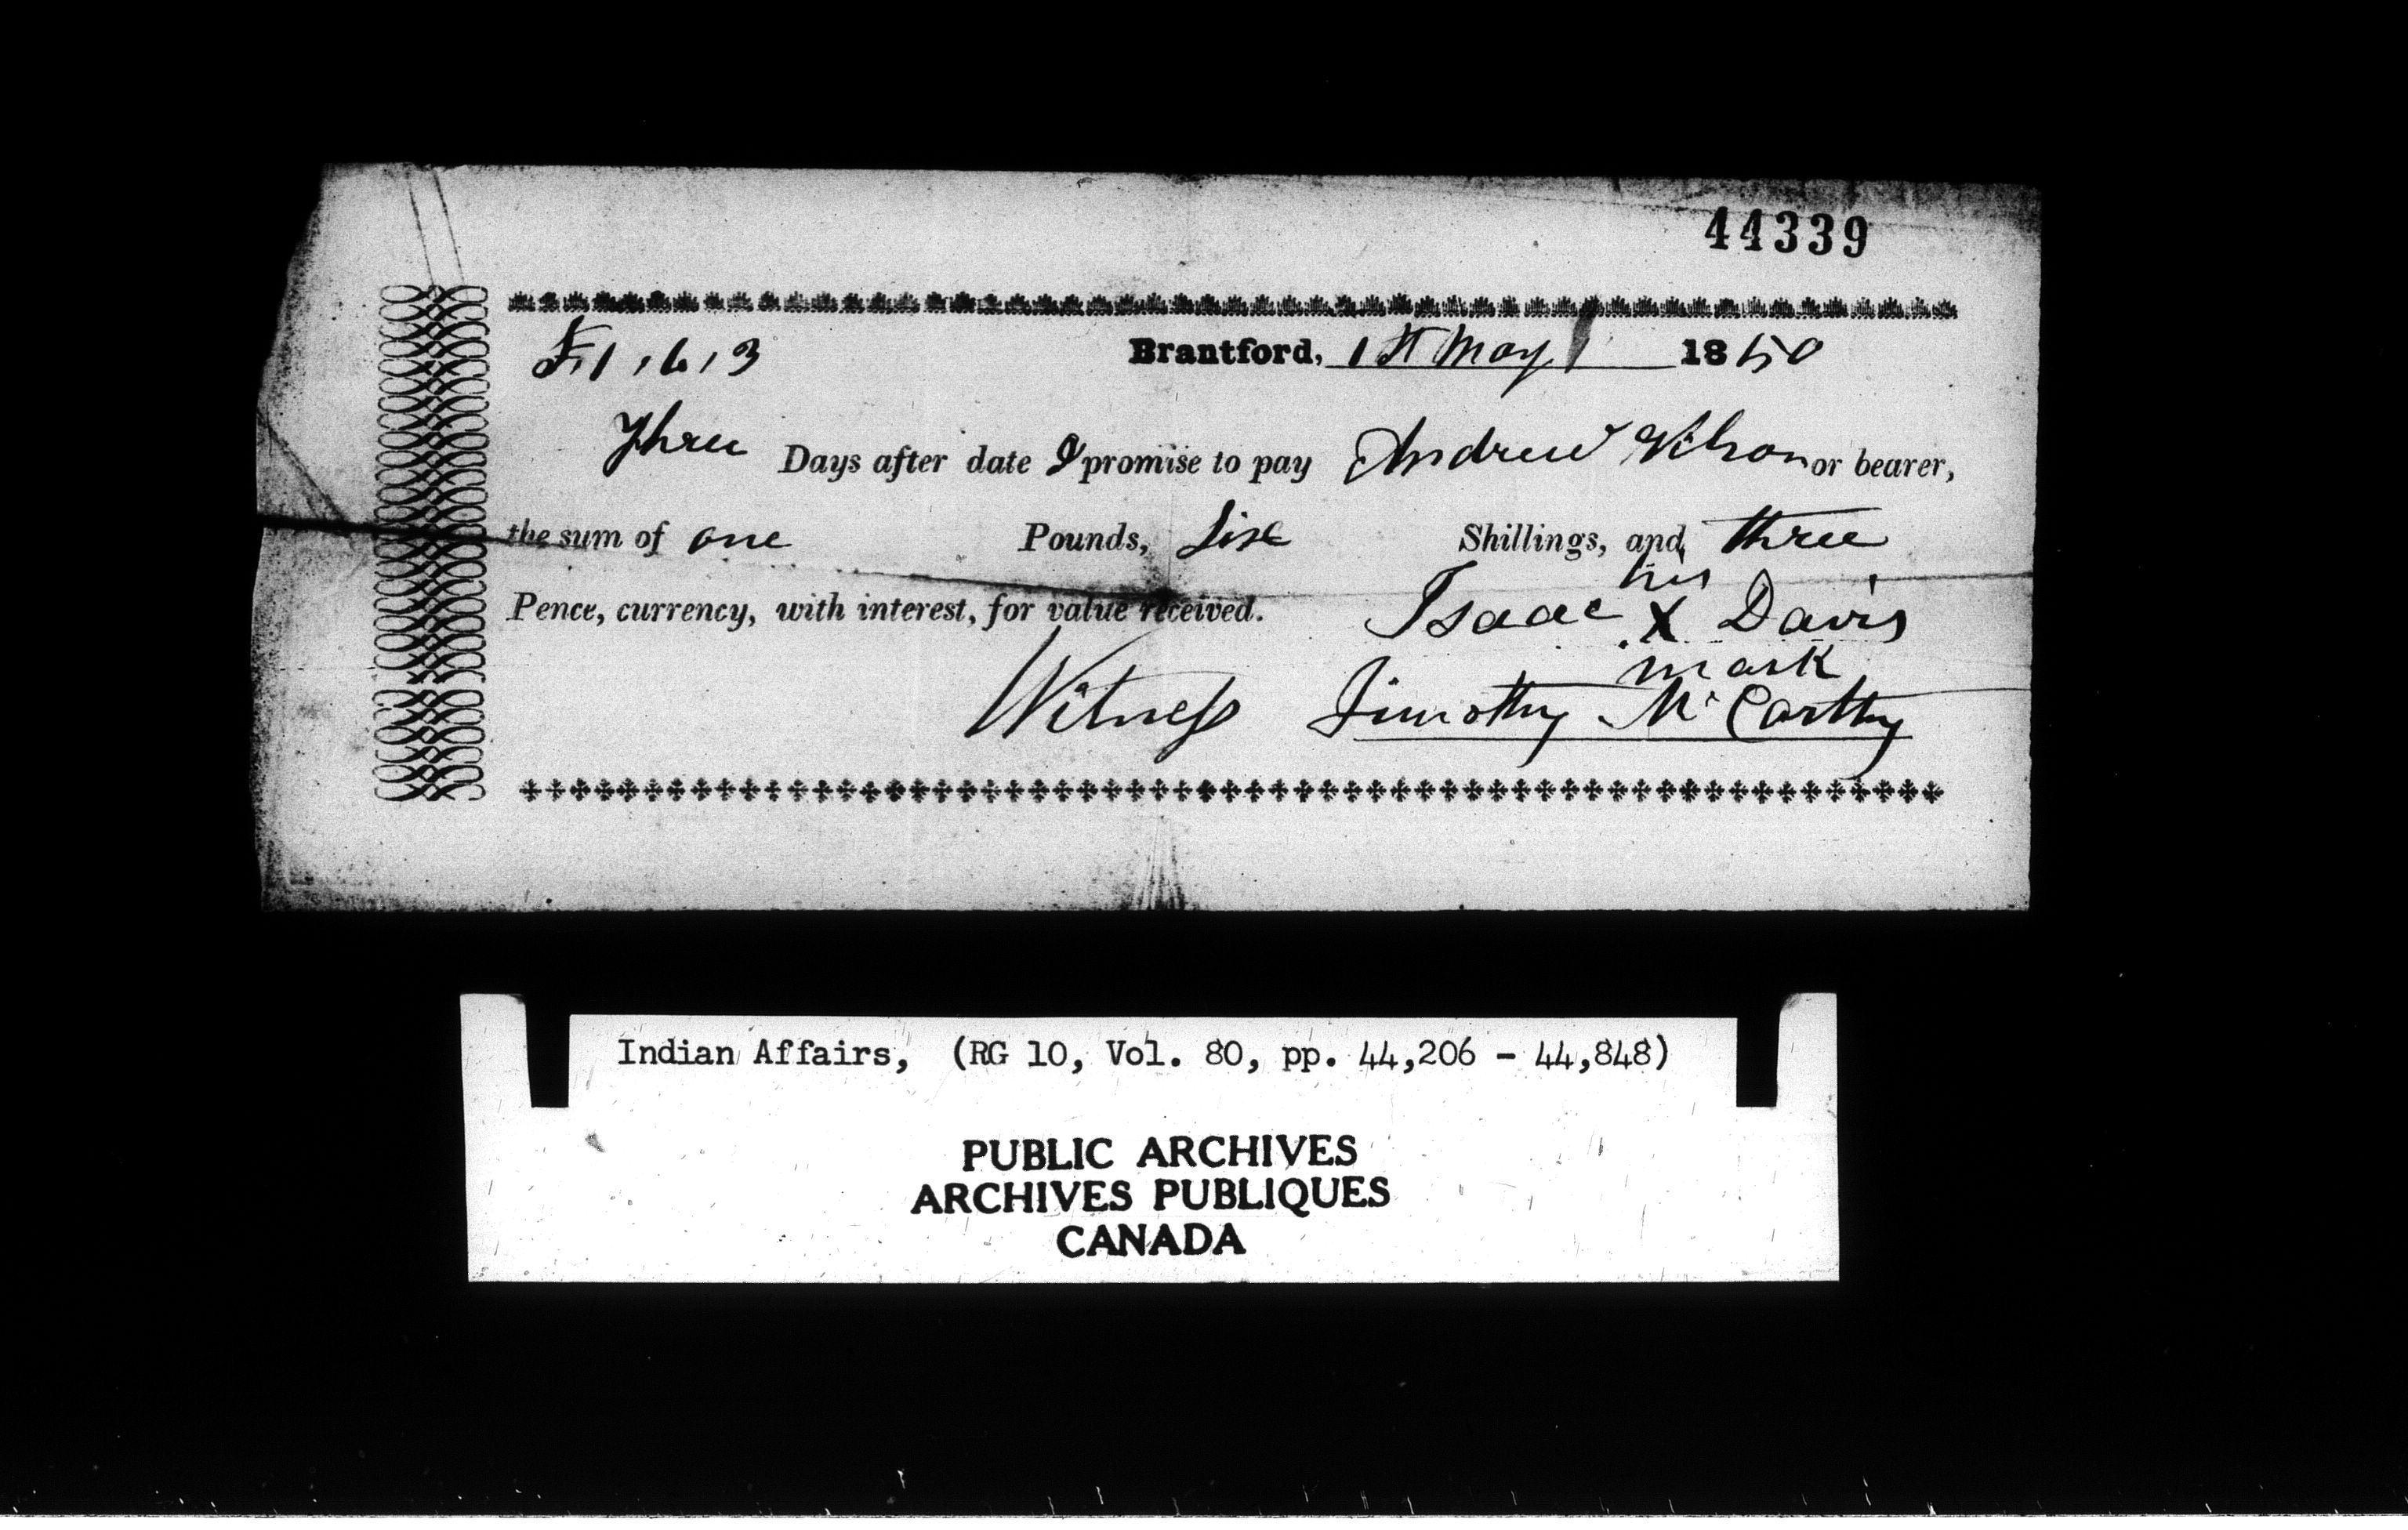 44339
£1,6,3 Brantford, 1st May 1850
Three Days after date I promise to pay Andrew Wilson or bearer,
the sum of one Pounds, Six Shillings, and three
his
Pence, currency, with interest, for value received. Isaac X Davis
mark
Witness Timothy McCarthy
Indian Affairs, (RG 10, Vol. 80, pp. 44,206 - 44,848)
PUBLIC ARCHIVES
ARCHIVES PUBLIQUES
CANADA